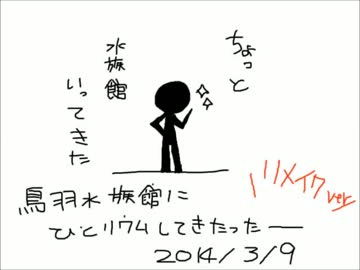 ちょっと
水族館
いってきた
鳥羽水族館に
ひとリウムしてきたったー
2014/3/9
リメイクver